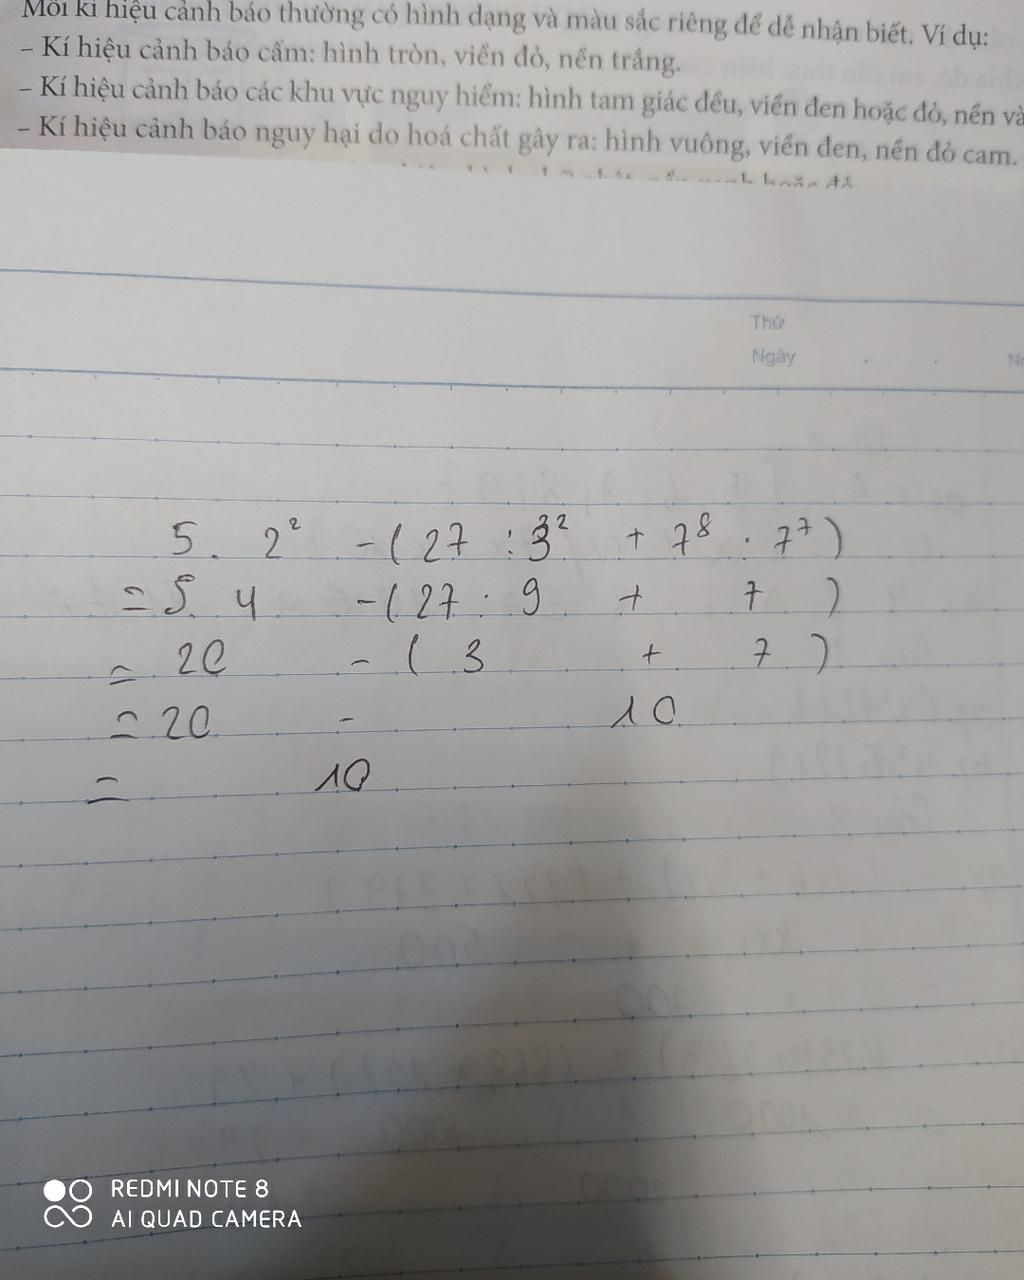 Mỗi kí hiệu cảnh báo thường có hình dạng và màu sắc riêng để dễ nhận biết. Ví dụ:
– Kí hiệu cảnh báo cấm: hình tròn, viền đỏ, nền trắng.
– Kí hiệu cảnh báo các khu vực nguy hiểm: hình tam giác đều, viền đen hoặc đỏ, nền và
– Kí hiệu cảnh báo nguy hại do hoá chất gây ra: hình vuông, viền đen, nền đỏ cam.
Thứ
Ngày
5 . 2² - ( 27 : 3² + 7⁸ . 7⁷ )
= 5 4 - ( 27 . 9 + 7 )
= 20 - ( 3 + 7 )
= 20 - 10
= 10
REDMI NOTE 8
AI QUAD CAMERA